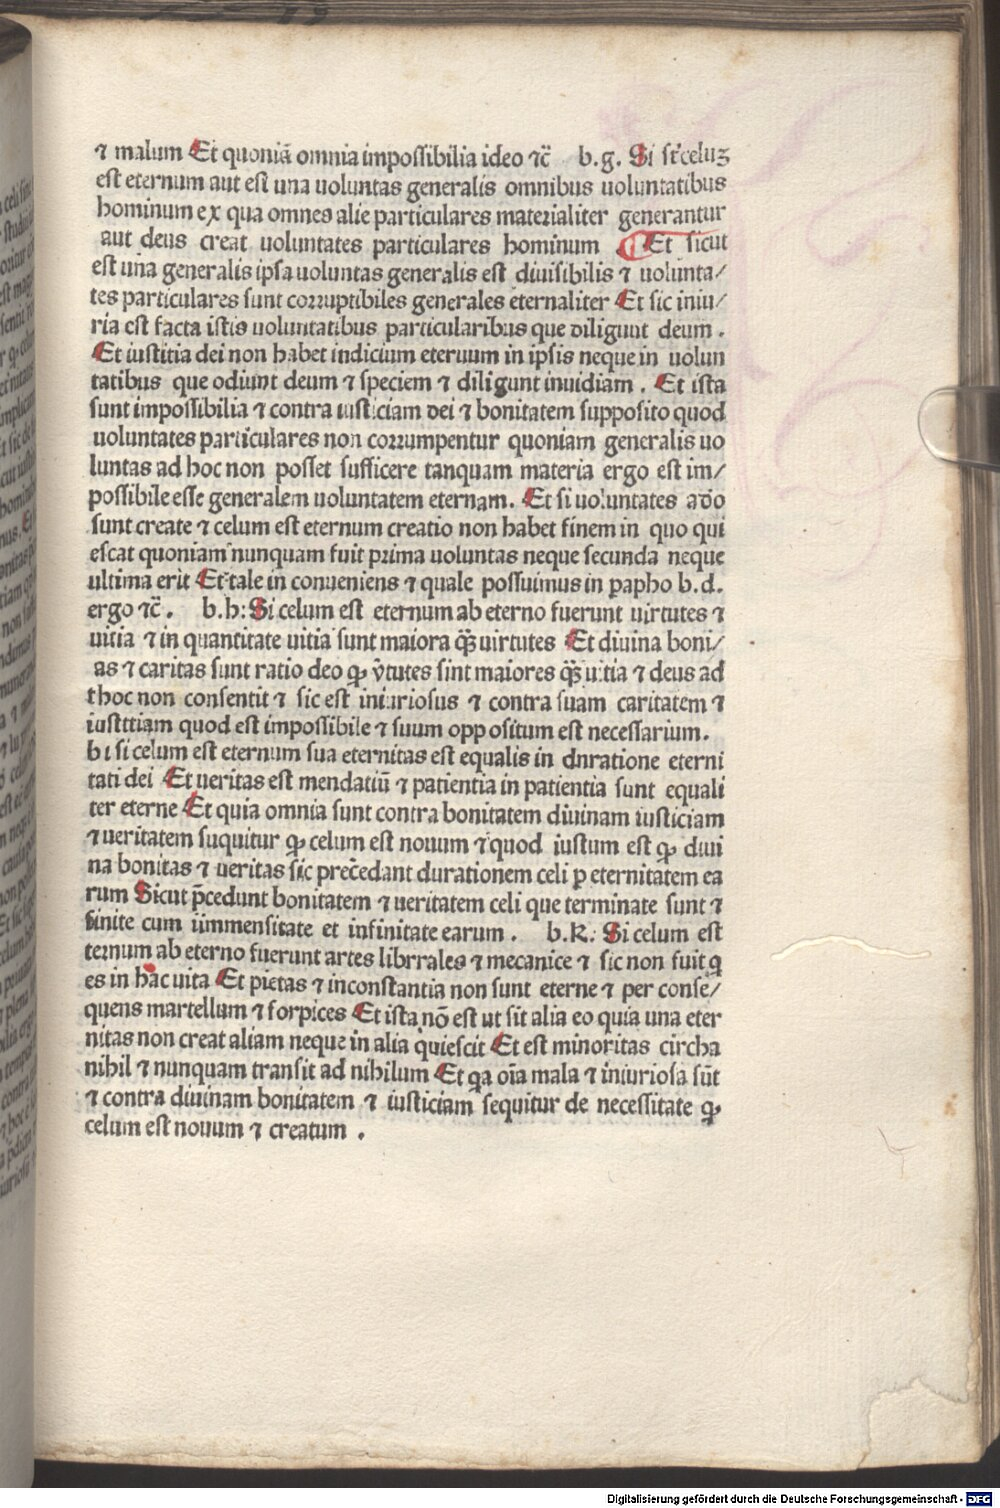 ⁊ malum Et quoniã omnia impossibilia ideo ⁊c̃ b.g. Si st̃ celuʒ
est eternum aut est una uoluntas generalis omnibus uoluntatibus
hominum ex qua omnes alie particulares materialiter generantur
aut deus creat uoluntates particulares hominum ¶ Et sicut
est una generalis ipsa uoluntas generalis est diuisibilis ⁊ uolunta/
tes particulares sunt corruptibiles generales eternaliter Et sic iniu/
ria est facta istis uoluntatibus particularibus que diligunt deum .
Et iustitia dei non habet indicium eteruum in ipsis neque in uolun
tatibus que odiunt deum ⁊ speciem ⁊ diligunt inuidiam . Et ista
sunt impossibilia ⁊ contra iusticiam dei ⁊ bonitatem supposito quod
uoluntates particulares non corrumpentur quoniam generalis uo
luntas ad hoc non posset sufficere tanquam materia ergo est im/
possibile esse generalem uoluntatem eternam . Et si uoluntates a deo
sunt create ⁊ celum est eternum creatio non habet finem in quo qui
escat quoniam nunquam fuit prima uoluntas neque secunda neque
ultima erit Et tale in conueniens ⁊ quale possuimus in papho b.d.
ergo ⁊c̃ . b.h: Si celum est eternum ab eterno fuerunt uirtutes ⁊
uitia ⁊ in quantitate uitia sunt maiora q̃ꝫ uirtutes Et diuina boni/
as ⁊ caritas sunt ratio deo ꝙ ṽtutes sint maiores q̃ꝫ uitia ⁊ deus ad
thoc non consentit ⁊ sic est iniuriosus ⁊ contra suam caritatem ⁊
iustitiam quod est impossibile ⁊ suum opp ositum est necessarium .
b i si celum est eternum sua eternitas est equalis in dnratione eterni
tati dei Et ueritas est mendatiũ ⁊ patientia in patientia sunt equali
ter eterne Et quia omnia sunt contra bonitatem diuinam iusticiam
⁊ ueritatem suquitur ꝙ celum est nouum ⁊ quod iustum est ꝙ diui
na bonitas ⁊ ueritas sic prec̃edant durationem celi p eternitatem ea
rum Sicut p̃cedunt bonitatem ⁊ ueritatem celi que terminate sunt ⁊
finite cum iimmensitate et infinitate earum . b.K: Si celum est
ternum ab eterno fuerunt artes librrales ⁊ mecanice ⁊ sic non fuit q
es in hac uita Et pietas ⁊ inconstantia non sunt eterne ⁊ per conse/
quens martellum ⁊ forpices Et ista nõ est ut sit alia eo quia una eter
nitas non creat aliam neque in alia quiescit Et est minoritas circha
nihil ⁊ nunquam transit ad nihilum Et qa oĩa mala ⁊ iniuriosa sũt
⁊ contra diuinam bonitatem ⁊ iusticiam sequitur de necessitate ꝙ
celum est nouum ⁊ creatum .
Digitalisierung gefördert durch die Deutsche Forschungsgemeinschaft - DFG